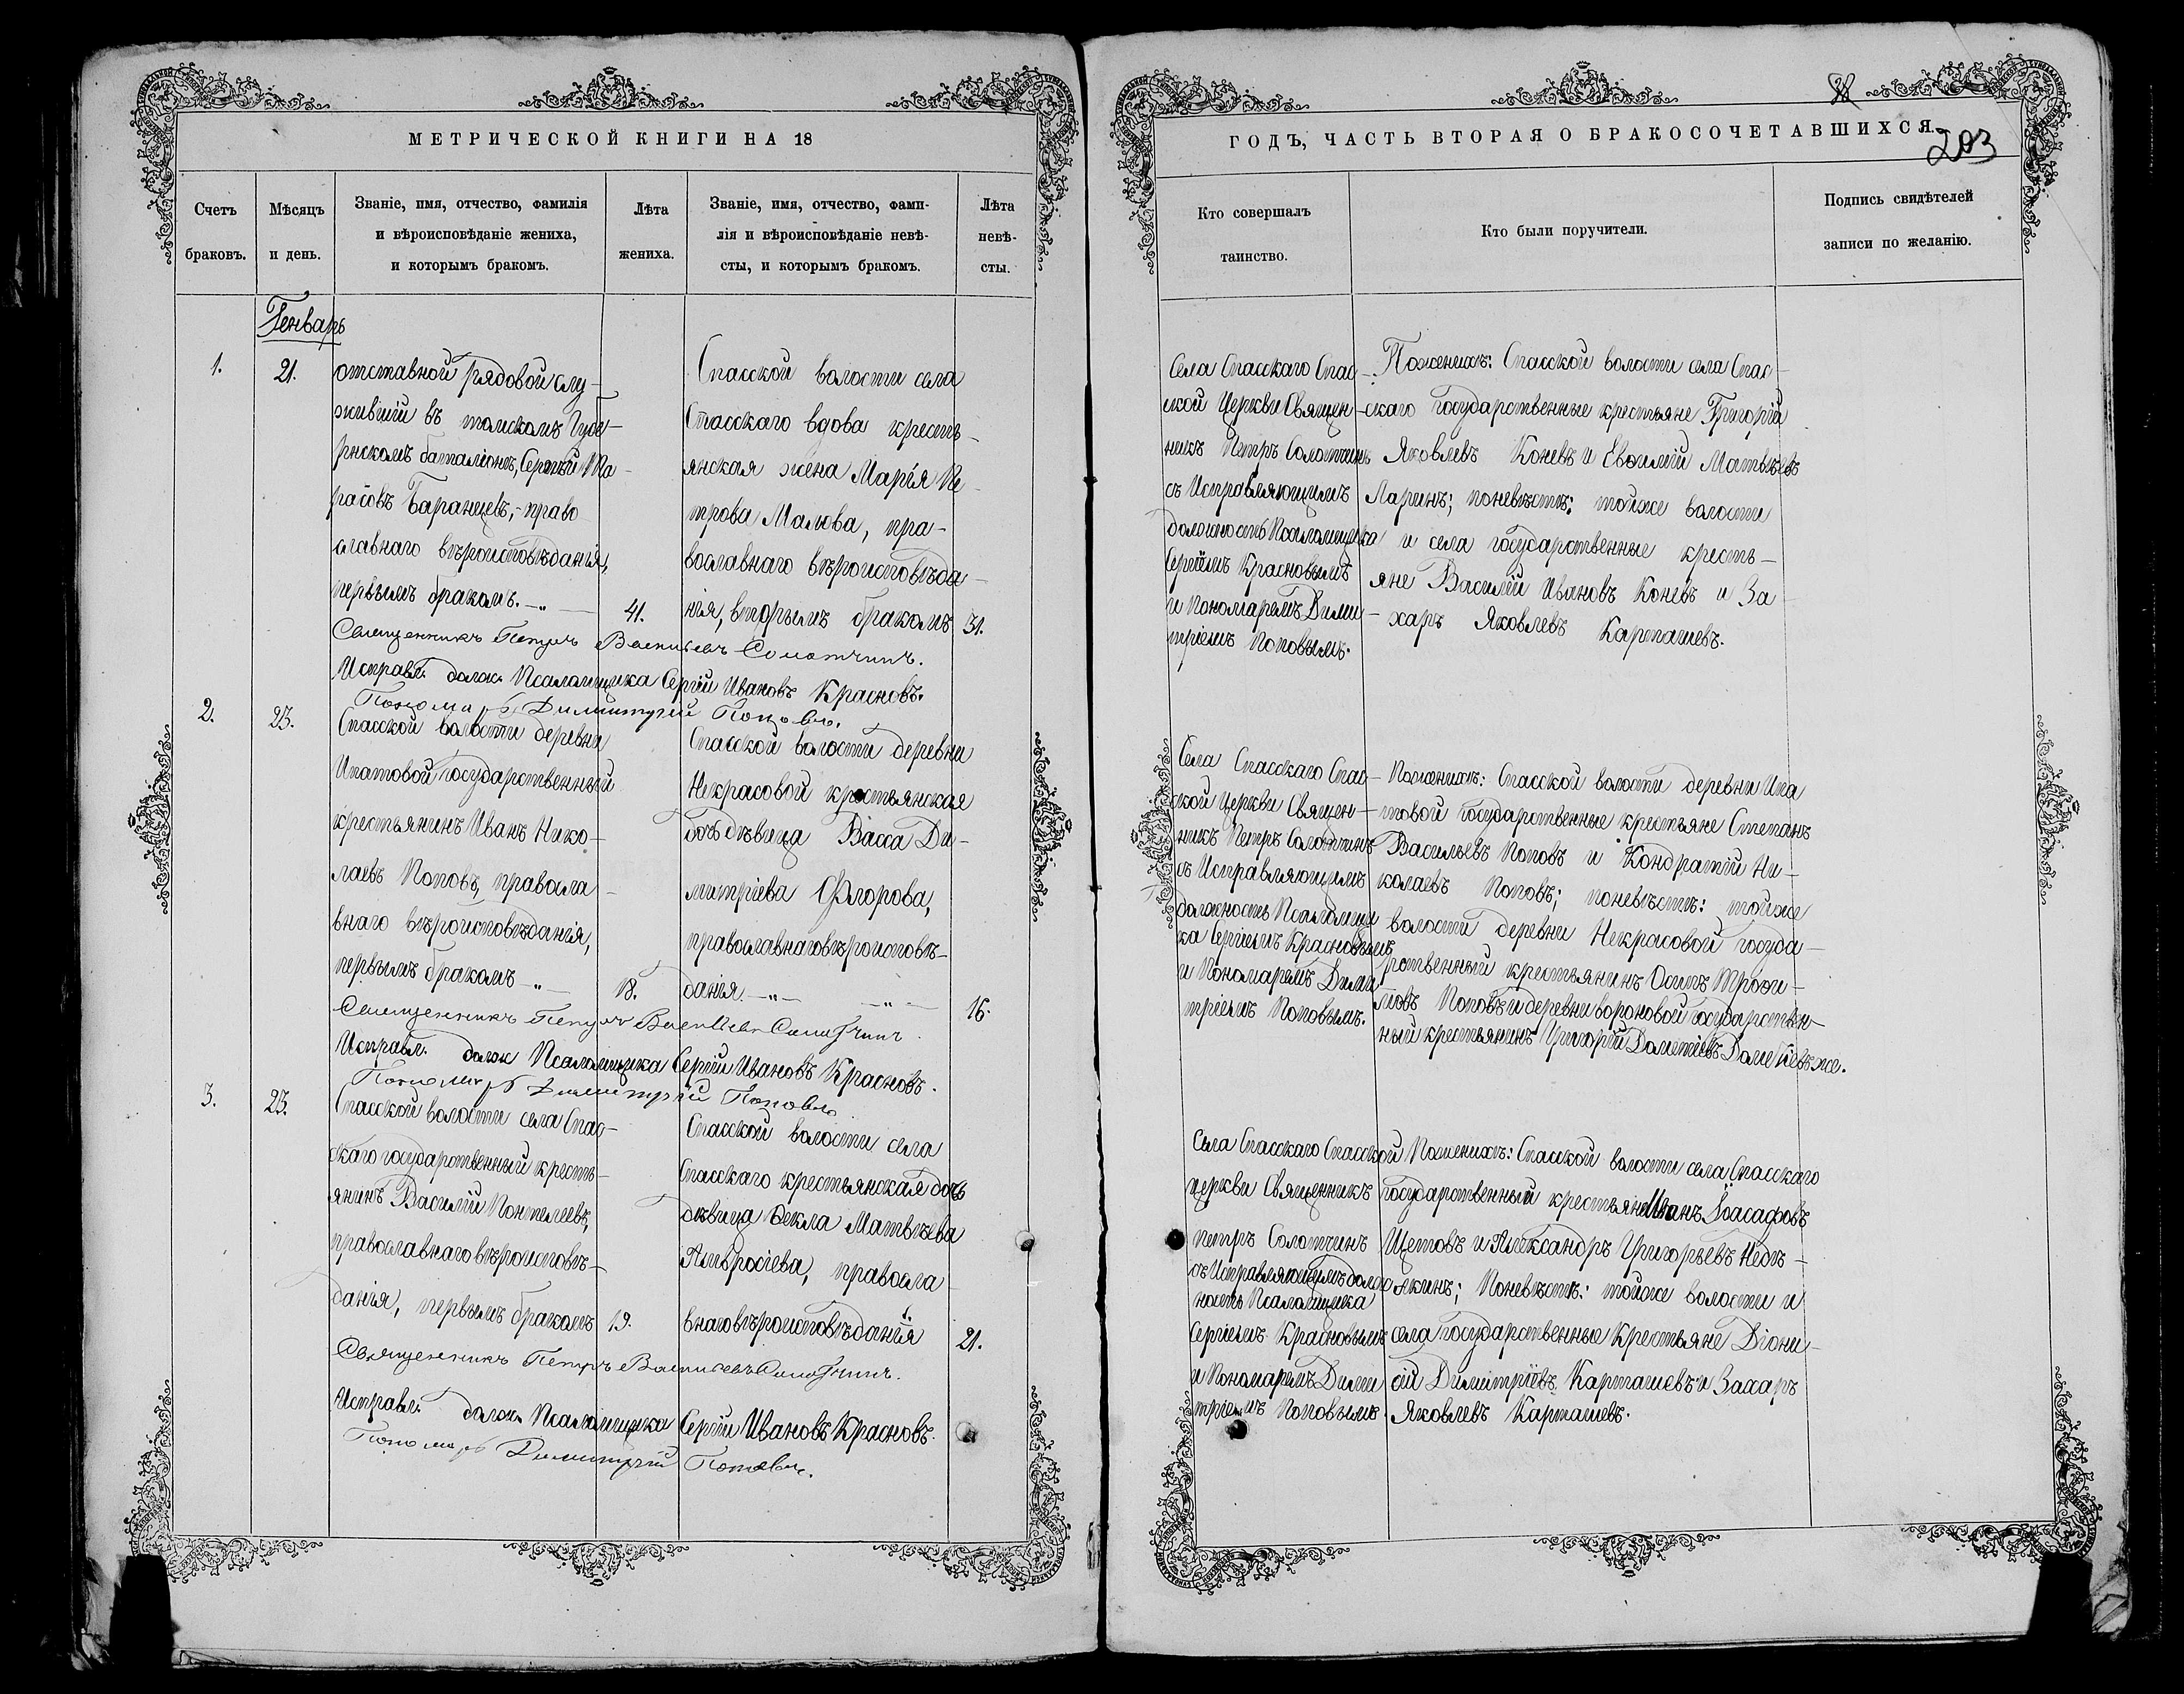 МЕТРИЧЕСКОЙ КНИГИ НА 18
Счетъ браковъ.
Мѣсяцъ и день.
Званіе, имя, отчество, фамилія
и вѣроисповѣданіе жениха,
и которымъ бракомъ.
Лѣта жениха.
Званіе, имя, отчество, фами-
лія и вѣроисповѣданіе невѣ-
сты, и которымъ бракомъ.
Лѣта невѣ-
сты.
Генварь
1.
21.
отставной рядовой слу-
жившій въ томскомъ Губе-
рнскомъ баталіонѣ, Сергѣй Та-
расовъ Баранцевъ, право
славнаго вѣроисповѣданія,
первымъ бракомъ. -„-
41.
Спасской волости села
Спасскаго вдова кресть-
янская жена Марья Пе-
трова Малова, пра-
вославнаго вѣроисповѣда-
нія, вторымъ бракомъ
31.
Священникъ Петръ Васильевъ Солотчинъ.
Исправл. долж. Псаломщика Сергій Ивановъ Красновъ.
Пономарь Димитрій Поповъ.
2.
23.
Спасской волости деревни
Ипатовой государственный
крестьянинъ Иванъ Нико-
лаевъ Поповъ, правосла-
внаго вѣроисповѣданія,
первымъ бракомъ -„-
18.
Спасской волости деревни
Некрасовой крестьянская
дочь дѣвица Васса Ди-
митріева Флорова,
православнаго вѣроисповѣ-
данія. -„- -„-
16.
Священникъ Петръ Васильевъ Солотчинъ.
Исправл. долж Псаломщика Сергій Ивановъ Красновъ.
Пономарь Димитрій Поповъ
3.
23.
Спасской волости села Спас-
скаго государственный кресть-
янинъ Василій Понтелеевъ,
православнаго вѣроисповѣ-
данія, первымъ бракомъ
19.
Спасской волости села
Спасскаго крестьянская дочь
дѣвица Ѳекла Матвѣева
Амвросіева, правосла-
внаго вѣроисповѣданія
21.
Священникъ Петръ Васильевъ Солотчинъ.
Исправл. долж. Псаломщика Сергій Ивановъ Красновъ.
Пономарь Димитрій Поповъ.
ГОДЪ, ЧАСТЬ ВТОРАЯ О БРАКОСОЧЕТАВШИХСЯ.
203
Кто совершалъ
таинство.
Кто были поручители.
Подпись свидѣтелей
записи по желанію.
Села Спасскаго Спас-
ской Церкви Священ-
никъ Петръ Солотчинъ
съ Исправляющимъ
должность Псаломщика
Сергіемъ Красновымъ
и Пономаремъ Дими-
тріемъ Поповымъ.
Поженихѣ: Спасской волости села Спас-
скаго государственные крестьяне Григорій
Яковлевъ Коневъ и Евѳимій Матвѣевъ
Ларинъ; поневѣстѣ: тойже волости
и села государственные кресть-
яне Василій Ивановъ Коневъ и За
харъ Яковлевъ Карташевъ.
Села Спасскаго Спас-
ской Церкви Священ-
никъ Петръ Солотчинъ
съ Исправляющимъ
должность Псаломщи
ка Сергіемъ Красновымъ
и Пономаремъ Дими
тріемъ Поповымъ.
Поженихѣ: Спасской волости деревни Ипа
товой государственные крестьяне Степанъ
Васильевъ Поповъ и Кондратій Ни-
колаевъ Поповъ; поневѣстѣ: тойже
волости деревни Некрасовой госуда-
рственный крестьянинъ Осипъ Трофи-
мовъ Поповъ и деревни вороновой государствен-
ный крестьянинъ Григорій
Села Спасскаго Спасской
церкви Священникъ
петръ Солотчинъ
съ Исправляющимъ долж
ность Псаломщика
Сергіемъ Красновымъ
и Пономаремъ Дими
тріемъ Поповымъ.
Поженихѣ: Спасской волости села Спасскаго
государственный крестьяне Иванъ Іоасафовъ
Щетовъ и Александръ Григорьевъ Недѣ-
якинъ; Поневѣстѣ: тойже волости и
села государственные Крестьяне Діони-
сій Димитріевъ Карташевъ и Захаръ
Яковлевъ Карташевъ.